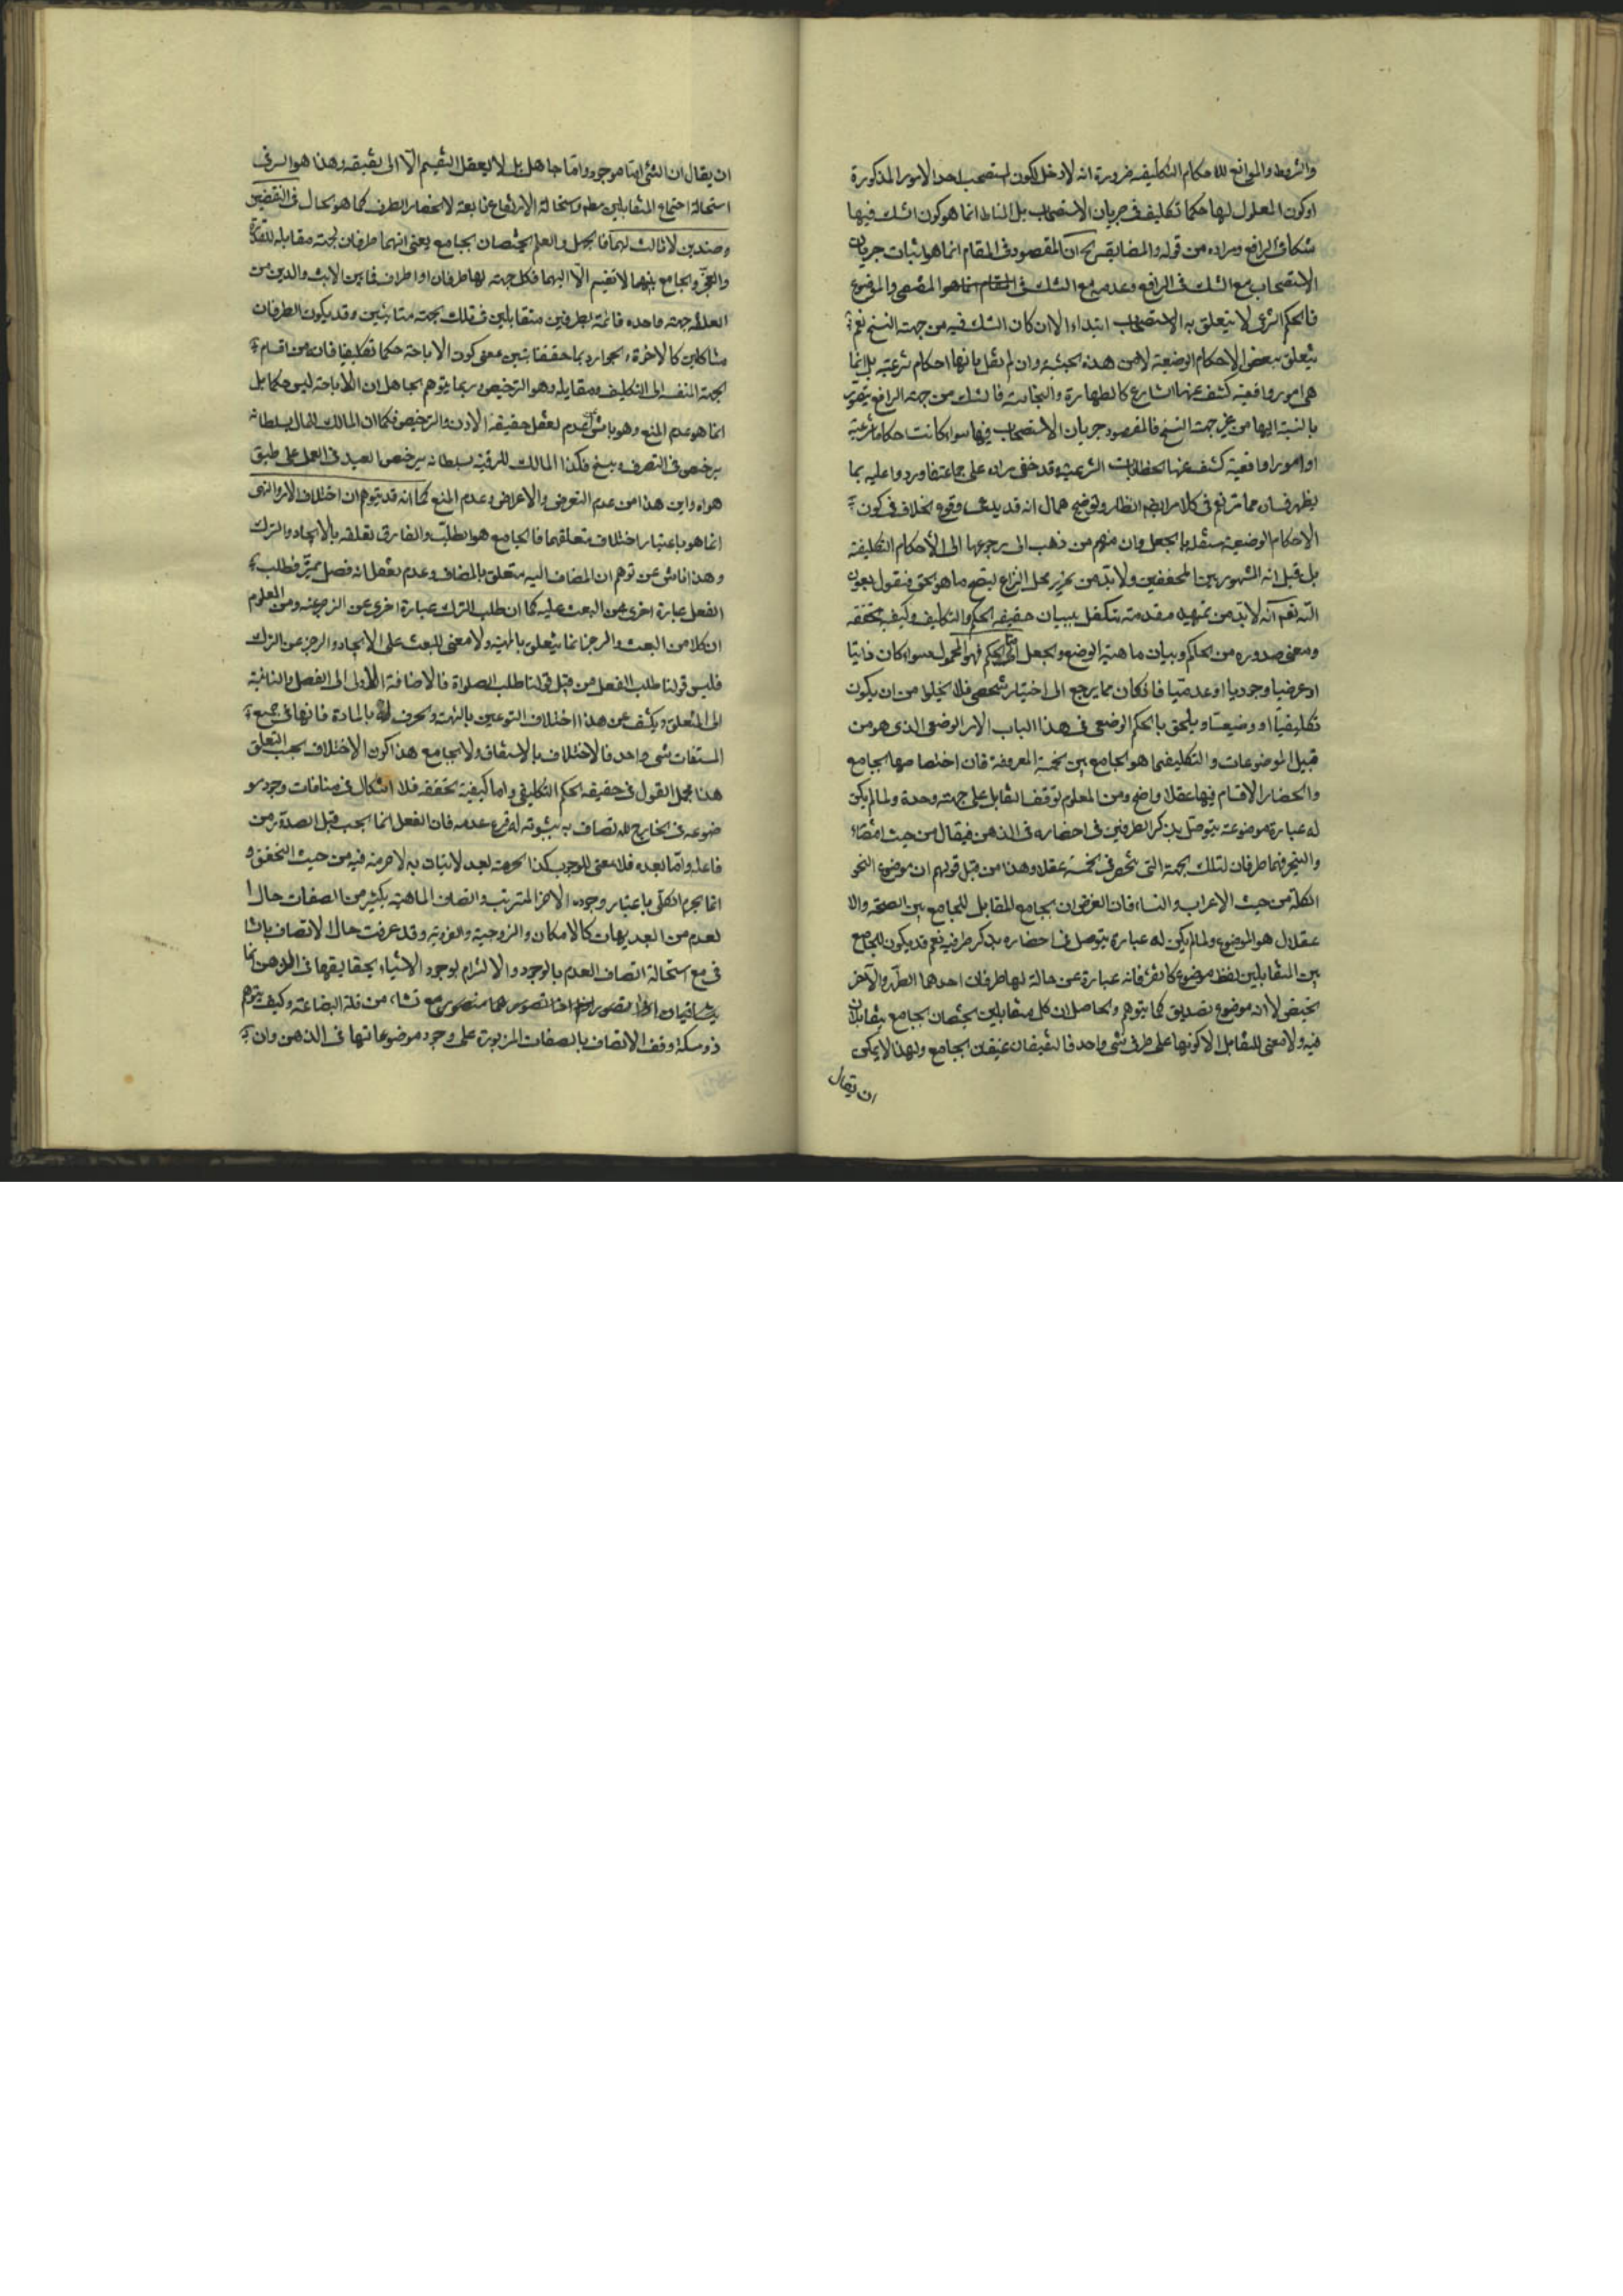 والشروط والموانع للاحكام التكليفيه ضرورة انه لا دخل لكون المستصحب احد الامور المذكورة
او كون المعلول لها حكما تكليفيا فى جريان الاستصحاب بل المناط انما هو كون الشك فيها
شكا فى الرافع ومراده من قوله والمضابقه ان المقصود فى المقام انما هو اثبات جريان
الاستصحاب مع الشك فى الرافع وعدمه مع الشك فى المقتضى والموضوع
فالحكم الشرعى لا يتعلق به الاستصحاب ابتداء الا ان كان الشك فيه من جهة النسخ نعم
يتعلق ببعض الاحكام الوضعية لا من هذه الحيثية وان لم نقل بانها احكام شرعية بل انما
هى امور واقعية كشف عنها الشارع كالطهارة والنجاسة فالشك من جهة الرافع يتصور
بالنسبة اليها من غير جهة النسخ فالمقصود جريان الاستصحاب فيها سواء كانت احكاما شرعية
او امورا واقعية كشف عنها الخطابات الشرعية وقد خفى مراده على جماعة فاوردوا عليه بما
يظهر فساده مما وقع فى كلام بعضهم انظار وتوضيح الحال انه قد يدعى وقوع الخلاف فى كون
الاحكام الوضعية مستقلة بالجعل وان منهم من ذهب الى رجوعها الى الأحكام التكليفية
بل قيل انه المشهور بين المحققين ولا بد من تحرير محل النزاع ليتضح ما هو الحق فنقول بعون
الله نعم انه لا بد من تمهيد مقدمة تتكفل ببيان حقيقة الحكم والتكليف وكيفية تحققه
ومعنى صدوره من الحاكم وبيان ماهية الوضع والجعل اما الحكم فهو المحمول سواء كان ذاتيا
او عرضيا وجوديا او عدميا فان كان مما يرجع الى اختيار شخصى فلا يخلو من ان يكون
تكليفيا او وضيعا ويلحق بالحكم الوضعى فى هذا الباب الامر الوضعى الذى هو من
قبيل الموضوعات والتكليف هو الجامع بين الخمسة المعروفة فان اختصاصها بجامع
وانحصار الاقسام فيها عقلا واضح ومن المعلوم توقف التقابل على جهة وحدة ولما لم يكن
له عبارة موضوعة يتوصل بذكر الطرفين فى احضاره فى الذهن فيقال من حيث اقتضاء
والتخير فهما طرفان لتلك الجهة التى تنحصر فى الخمسة عقلا وهذا من قبيل قولهم ان موضوع النحو
الكلمة من حيث الاعراب والبناء فان الغرض ان الجامع المقابل للجامع بين الصحة والا
عتلال هو الموضوع ولما لم يكن له عبارة يتوصل فى احضاره بذكر طرفيه نعم قد يكون للجامع
بين المتقابلين لفظ موضوع كالقرء فانه عبارة عن حالة لها طرفان احدهما الطهر والآخر
الحيض لا انه موضوع لمصداق كما يتوهم والحاصل ان كل متقابلين يختصان بجامع يتقابلان
فيه ولا معنى للتقابل الا كونها على طرفى شئ واحد فالنقيضان عنيفان الجامع ولهذا لا يمكن
ان يقال
ان يقال ان الشئ اما موجود واما جاهل بل لا يعقل التقسيم الا الى نقيضه وهذا هو السر فى
استحالة اجتماع المتقابلين مطلقا واستحالة الارتفاع تابعة لانحصار الطرف كما هو الحال فى النقيضين
وضدين لا ثالث لهما فالجهل والعلم يختصان بجامع يعنى انهما طرفان لجهة مقابله للقدرة
والعجز والجامع بينهما لا تقسيم الا اليهما فكل جهة لها طرفان او اطراف فما بين الاب والابن من
العلقة جهة واحدة قائمة بطرفين متقابلين فتلك الجهة متباينين وقد يكون الطرفان
متشاكلين كالاخوة والجوار وبما حققنا تبين معنى كون الاباحة حكما تكليفيا فانه من اقسام
الجهة المنقسمة الى التكليف ومقابله وهو الترخيص وربما يتوهم الجاهل ان الاباحة ليس حكما بل
انما هو عدم المنع وهو ناش من عدم تعقل حقيقة الاذن والترخيص فكما ان المالك للمال بسلطانه
يرخص فى التصرف فيه فكذا المالك للرقبة بسلطانه يرخص العبد فى العمل على طبق
هواه واين هذا من عدم التعرض والاعراض وعدم المنع كما انه قد يتوهم ان اختلاف الامر والنهى
انما هو باعتبار اختلاف متعلقهما فالجامع هو الطلب والفارق تعلقه بالايجاد والترك
وهذا ناش عن توهم ان المضاف اليه متعلق بالمضاف وعدم تعقل انه فصل مميز فطلب
الفعل عبارة اخرى من البعث عليه كما ان طلب الترك عبارة اخرى عن الزجر عنه ومن المعلوم
ان كلا من البعث والزجر انما يتعلق بالمهية ولا معنى للبعث على الايجاد والزجر عن الترك
فليس قولنا طلب الفعل من قبيل قولنا طلب الصلواة فالاضافة الأولى الى الفصل والثانية
الى المتعلق ويكشف عن هذا اختلاف النوعين بالهيئة والحرف لا بالمادة فانها فى جميع
المشتقات شئ واحد فالاختلاف بالاشتقاق ولا يجامع هذا كون الاختلاف بحسب التعلق
هذا مجمل القول فى حقيقة الحكم التكليفى واما كيفية تحققه فلا اشكال فى منافات وجود مو
ضوعه فى الخارج للاتصاف به بثبوته له فرع عدمه فان الفعل انما يجب قبل الصدور من
فاعله واما بعده فلا معنى للوجوب كذا الحرمة بعد الاتيان به لا حرمة فيه من حيث التحقق و
انما يحرم الكلى باعتبار وجوده الاخر المترتب واتصاف الماهية بكثير من الصفات حال ا
لعدم من البديهيات كالامكان والزوجية والفردية وقد عرفت حال الاتصاف بالثا
فى مع استحالة اتصاف العدم بالوجود والالتزام لوجود الاشياء بحقايقها فى الذهن انما
ذو مسكة وقف الاتصاف بالصفات المزبورة على وجود موضوعاتها فى الذهن وان